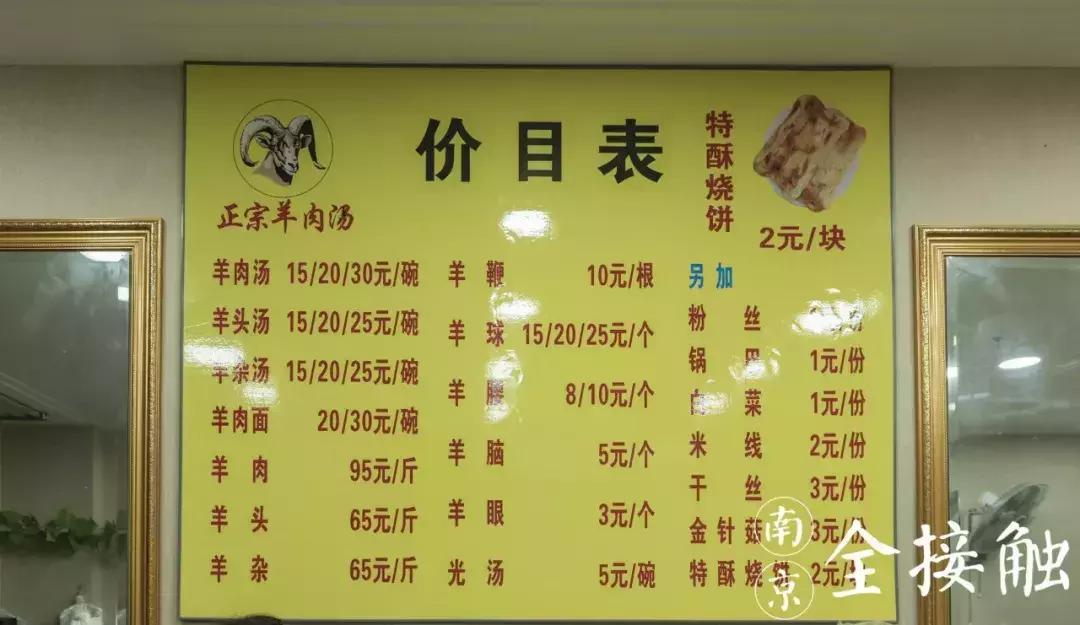 价目表
正宗羊肉汤
特酥烧饼
2元/块
羊肉汤 15/20/30元/碗
羊头汤 15/20/25元/碗
羊杂汤 15/20/25元/碗
羊肉面 20/30元/碗
羊肉 95元/斤
羊头 65元/斤
羊杂 65元/斤
羊鞭 10元/根
羊球 15/20/25元/个
羊腰 8/10元/个
羊脑 5元/个
羊眼 3元/个
光汤 5元/碗
另加
粉丝
锅巴 1元/份
白菜 1元/份
米线 2元/份
干丝 3元/份
金针菇 3元/份
特酥烧饼 2元/块
南京
全接触